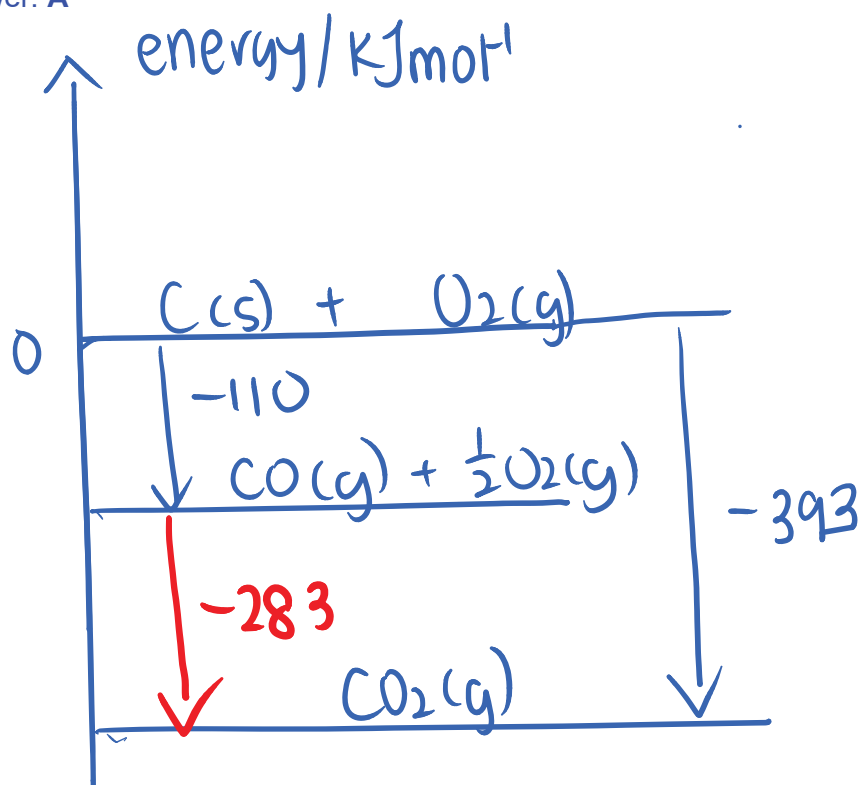 ver: A
energy/KJmol⁻¹
C(s) + O₂(g)
0
-110
CO(g) + ½O₂(g)
-393
-283
CO₂(g)